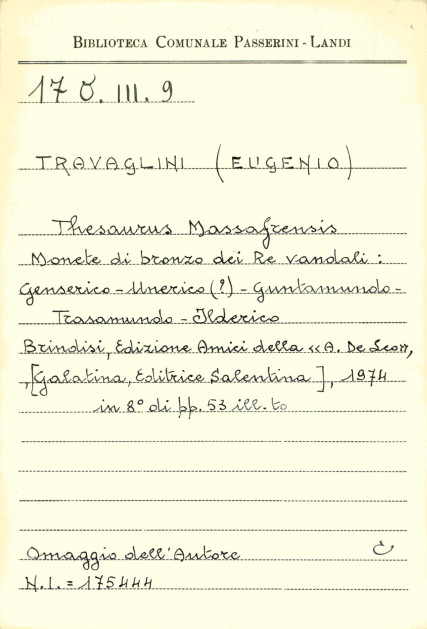 BIBLIOTECA COMUNALE PASSERINI - LANDI
17 O. III. 9
TRAVAGLINI (EUGENIO)
Thesaurus Massafrensis
Monete di bronzo dei Re vandali :
Genserico - Unerico (?) - Guntamundo -
Trasamundo - Ilderico
Brindisi, Edizione Amici della «A. De Leo»,
, [Galatina, Editrice Salentina], 1974
in 8° di pp. 53 ill. to
Omaggio dell'Autore
N. I. = 175444